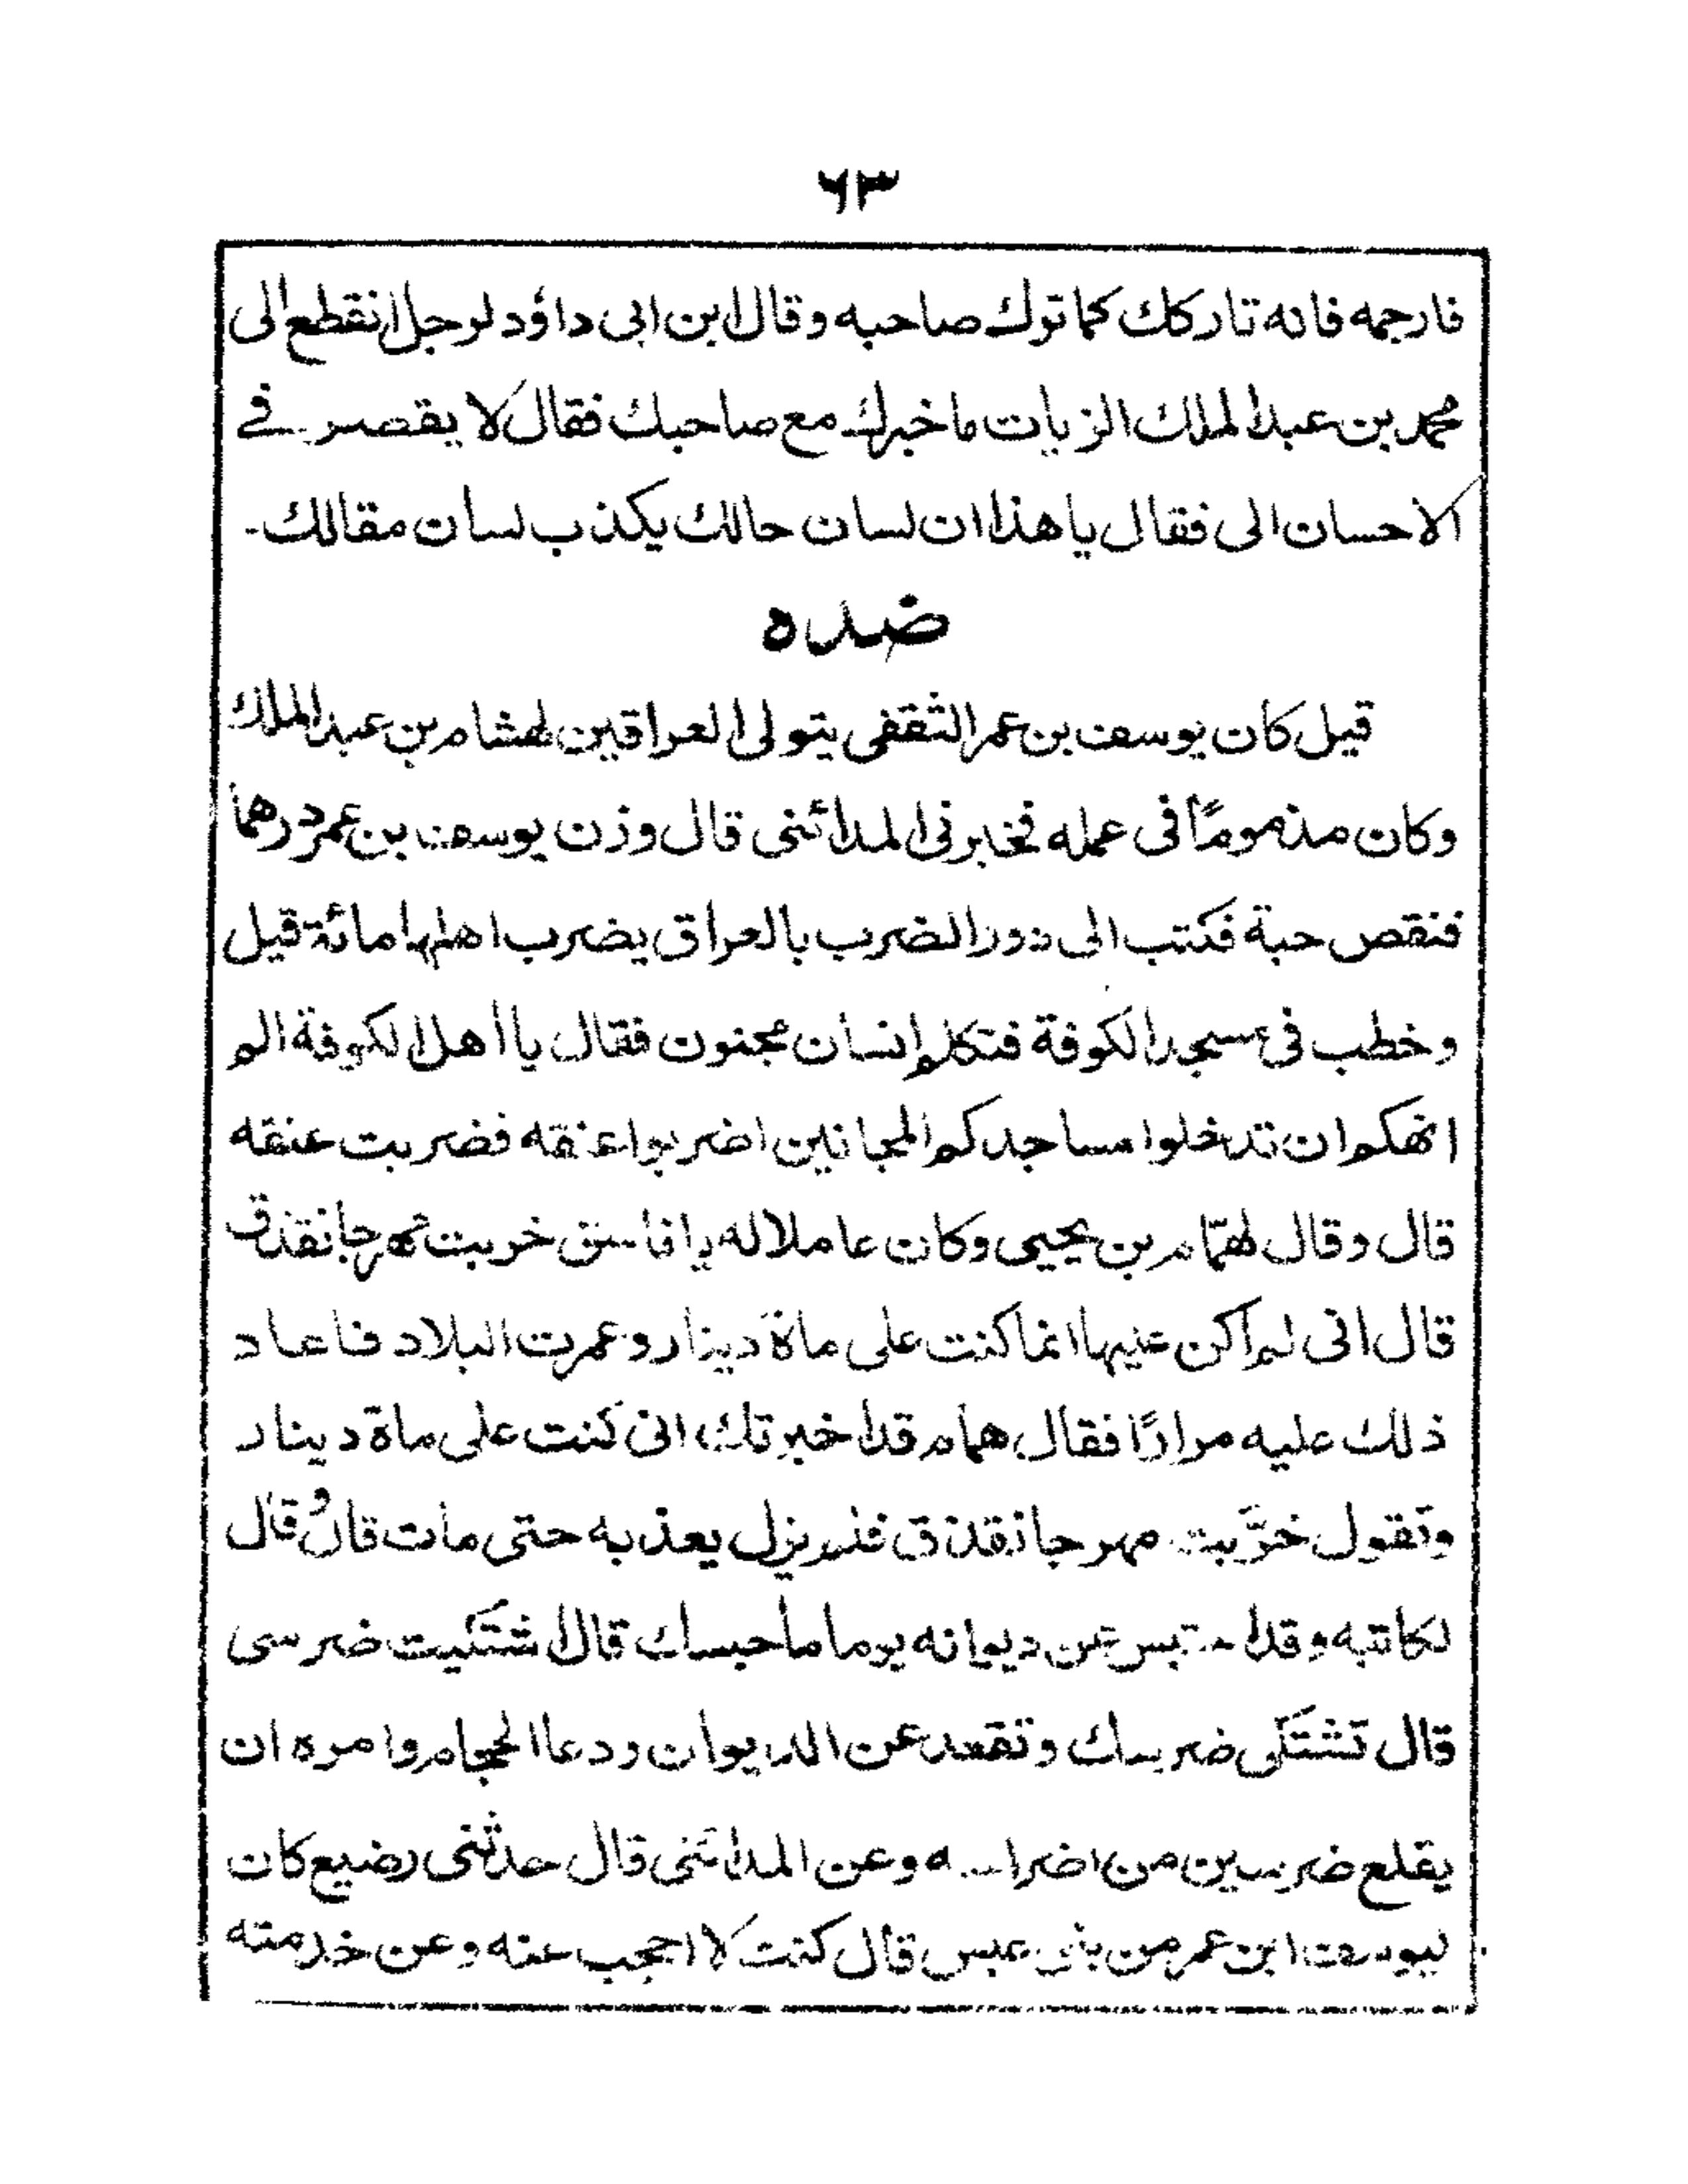 ٦٣
فارحمه فانه تاركك كما ترك صاحبه وقال ابن ابى داؤد لرجل انقطع الى
محمد بن عبد الملك الزيات ما خبرك مع صاحبك فقال لا يقصر فے
الاحسان الى فقال يا هذا ان لسان حالك يكذب لسان مقالك-
ضده
قيل كان يوسف بن عمر الثقفى يتولى العراقين لهشام بن عبد الملك
وكان مذمومًا فى عمله فخبرنى المدائنى قال وزن يوسف بن عمر درهما
فنقص حبة فكتب الى دور الضرب بالعراق يضرب اهلها مائة قيل
وخطب فى مسجد الكوفة فتكلم إنسان مجنون فقال يا أهل الكوفة الم
انهكم ان تدخلوا مساجدكم المجانين اضربوا عنقه فضربت عنقه
قال وقال لهمّام بن يحيى وكان عاملا له يا فاسق خربت مهرجانقذق
قال انى لم أكن عليها انما كنت على ماة دينار وعمرت البلاد فاعاد
ذلك عليه مرارًا فقال همام قد اخبرتك انى كنت على ماة دينار
وتقول خرَّبت مهرجانقذق فلم يزل يعذبه حتى مات قال وقال
لكاتبه وقد احتبس عن ديوانه يوما ما حبسك قال اشتكيت ضرسى
قال تشتكى ضرسك وتقعد عن الديوان ودعا الحجام وامره ان
يقلع ضرسين من اضراسه وعن المدائنى قال حدثنى رضيع كان
ليوسف ابن عمر من بنى عبس قال كنت لا احجب عنه وعن خدمته